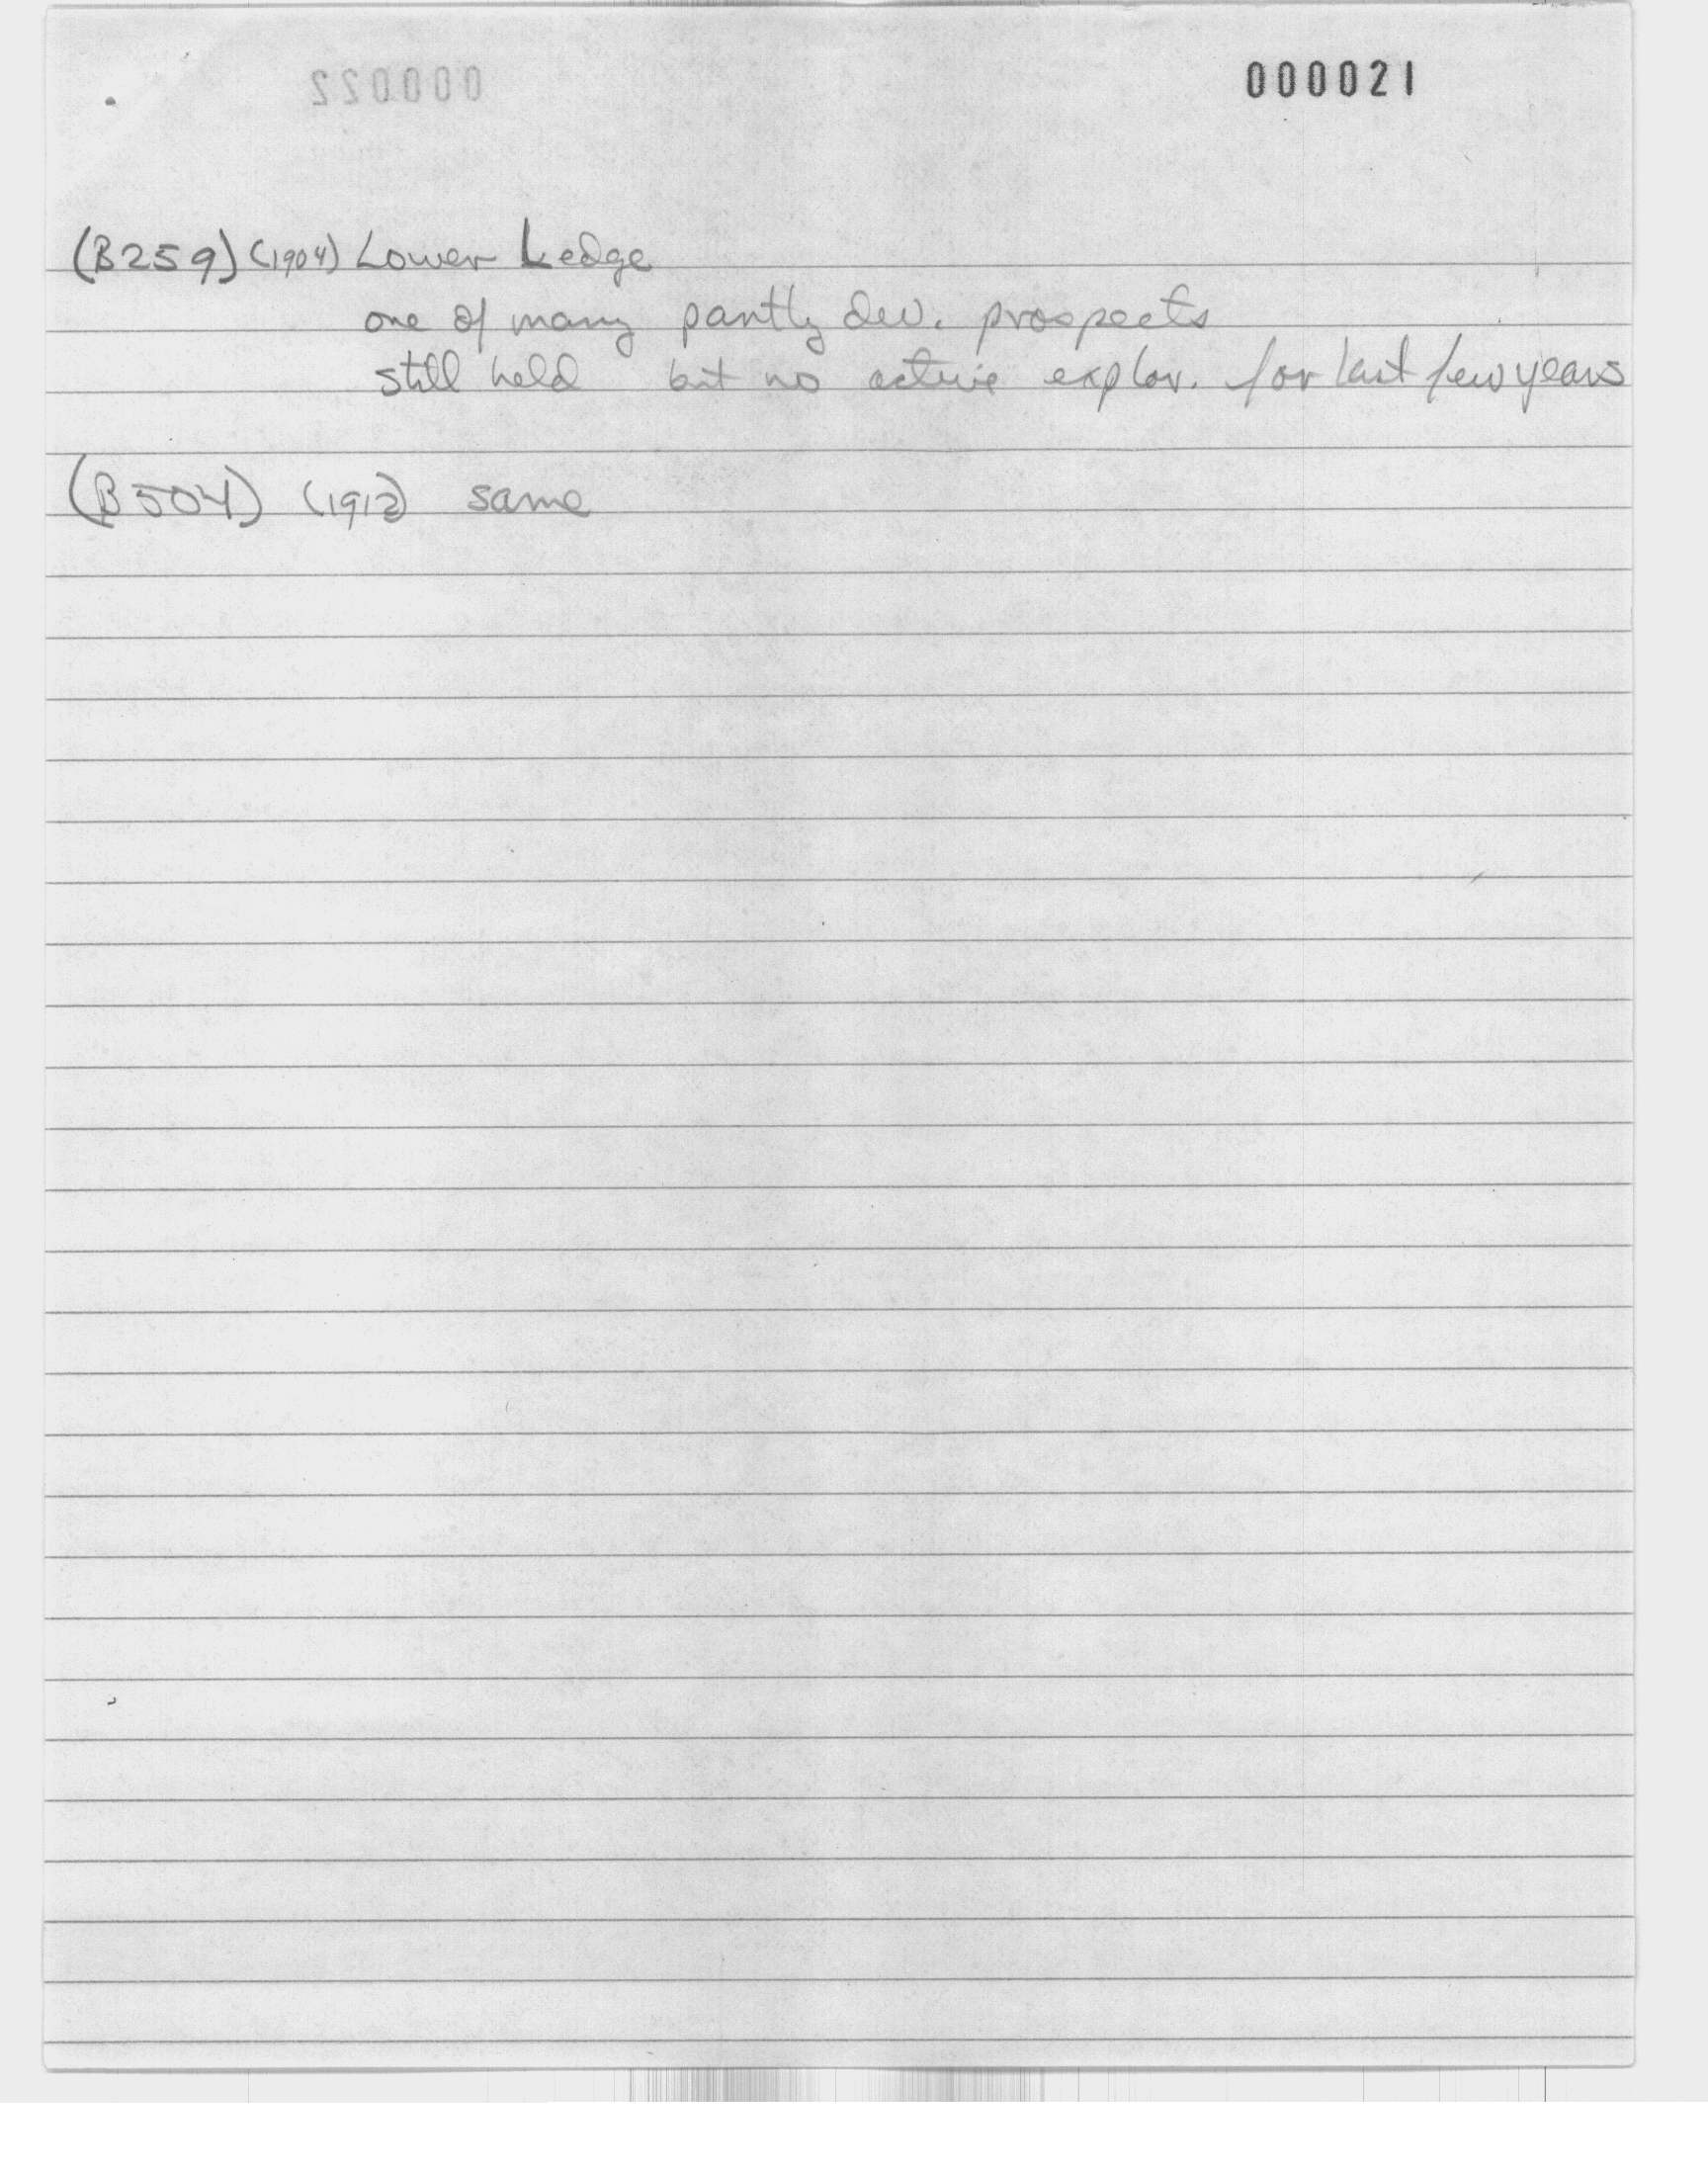 000021
(B259) (1904) Lower Ledge
one of many partly dev. prospects
still held but no active explor. for last few years
(B504) (1912) same